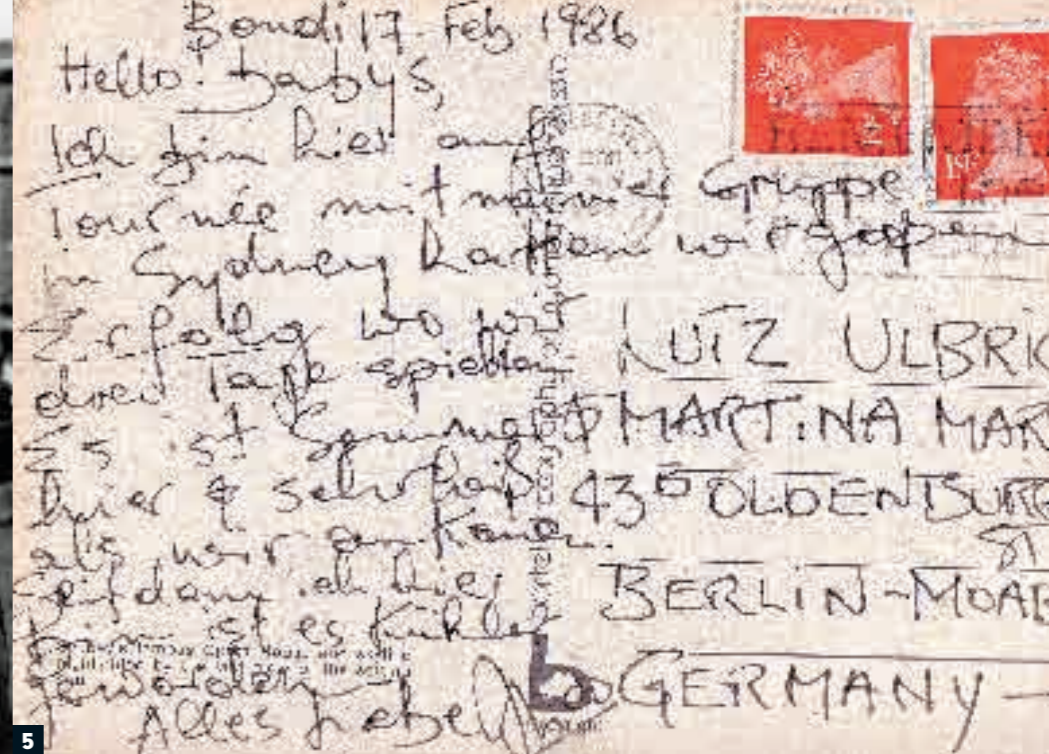 Bondi 17 Feb 1986
Hello Babys,
Ich bin hier auf
Tournée mit meiner Gruppe
in Sydney hatten wir großen
Erfolg wo wir
drei Tage spielten
Es ist Sommer
hier & sehr heiß
als wir an kamen.
Seitdem ich hier
bin ist es kühler
geworden
Alles Liebe
LUTZ ULBRIC
& MARTINA MAR
43 OLDENBURG
ST
BERLIN-MOAB
GERMANY
19P
b
5